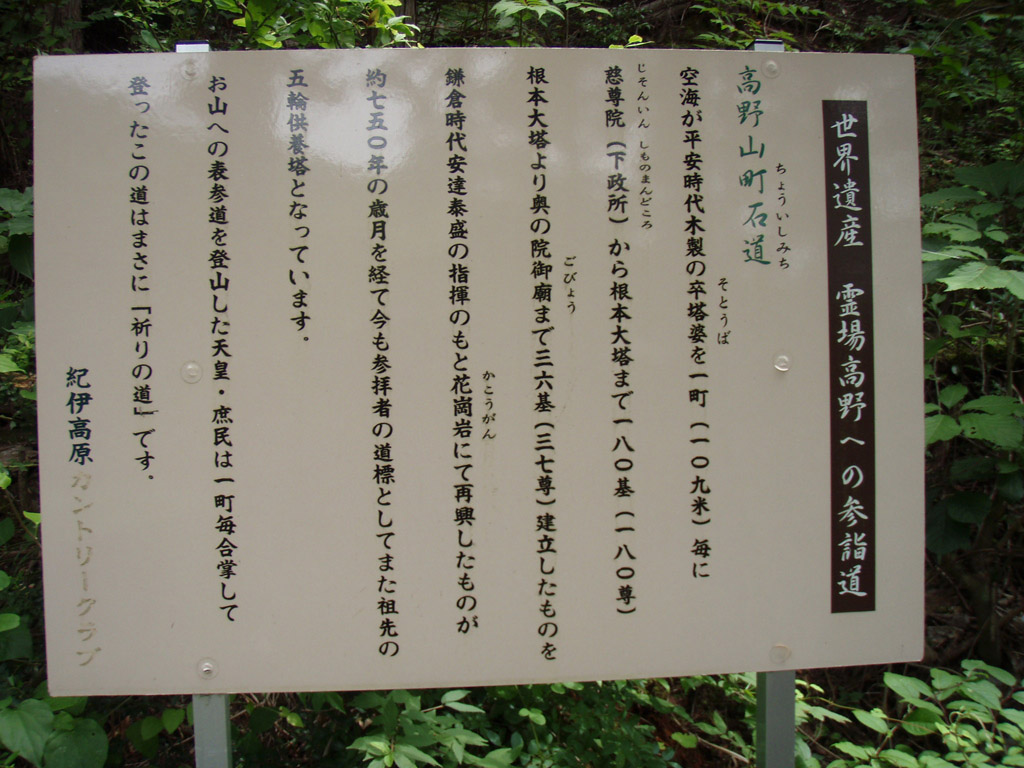 世界遺産 霊場高野への参詣道
高野山町石道
ちょういしみち
空海が平安時代木製の卒塔婆を一町（一〇九米）毎に
そとうば
慈尊院（下政所）から根本大塔まで一八〇基（一八〇尊）
じそんいん しものまんどころ
根本大塔より奥の院御廟まで三六基（三七尊）建立したものを
ごびょう
鎌倉時代安達泰盛の指揮のもと花崗岩にて再興したものが
かこうがん
約七五〇年の歳月を経て今も参拝者の道標としてまた祖先の
五輪供養塔となっています.
お山への表参道を登山した天皇・庶民は一町毎合掌して
登ったこの道はまさに「祈りの道」です.
紀伊高原カントリークラブ